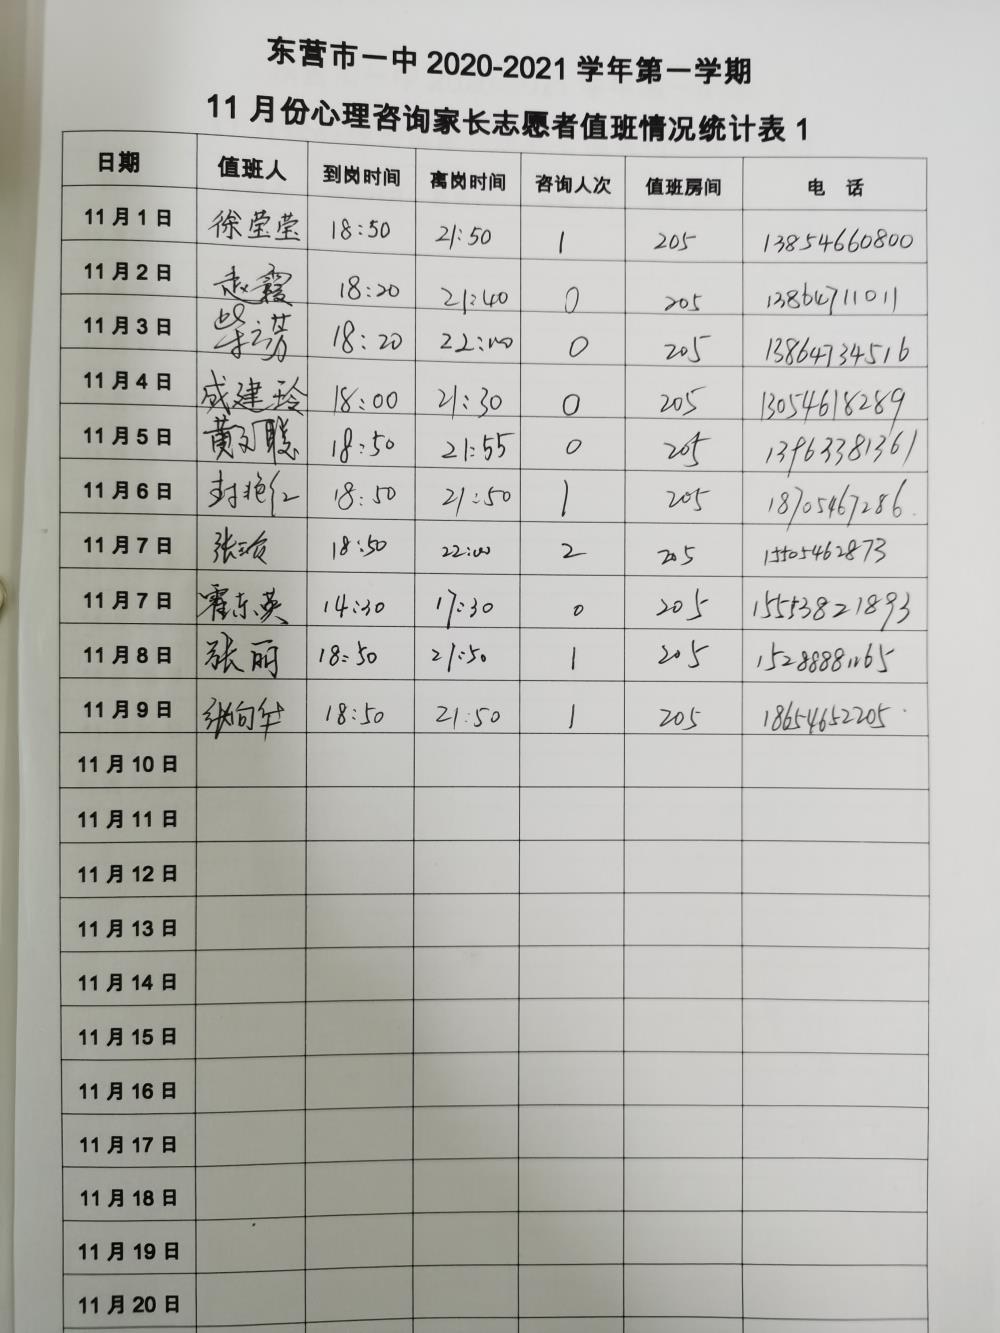 东营市一中 2020-2021 学年第一学期
11 月份心理咨询家长志愿者值班情况统计表 1
日期 值班人 到岗时间 离岗时间 咨询人次 值班房间 电 话
11 月 1 日 徐莹莹 18:50 21:50 1 205 13854660800
11 月 2 日 赵霞 18:20 21:40 0 205 13864711011
11 月 3 日 18:20 22:00 0 205 13864734516
11 月 4 日 成建玲 18:00 21:30 0 205 13054618289
11 月 5 日 18:50 21:55 0 205 13963381361
11 月 6 日 封艳红 18:50 21:50 1 205 18705467286
11 月 7 日 18:50 22:00 2 205 15505462873
11 月 7 日 霍东英 14:30 17:30 0 205 15553821893
11 月 8 日 张丽 18:50 21:50 1 205
11 月 9 日 18:50 21:50 1 205 18654652205
11 月 10 日
11 月 11 日
11 月 12 日
11 月 13 日
11 月 14 日
11 月 15 日
11 月 16 日
11 月 17 日
11 月 18 日
11 月 19 日
11 月 20 日